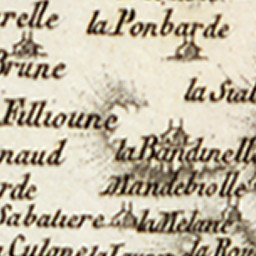 relle
la Ponbarde
Brune
la Sial
Fillioune
naud
la Bandinelle
rde
Mandebiolle
Sabatiere
la Melane
Culane
la Rou